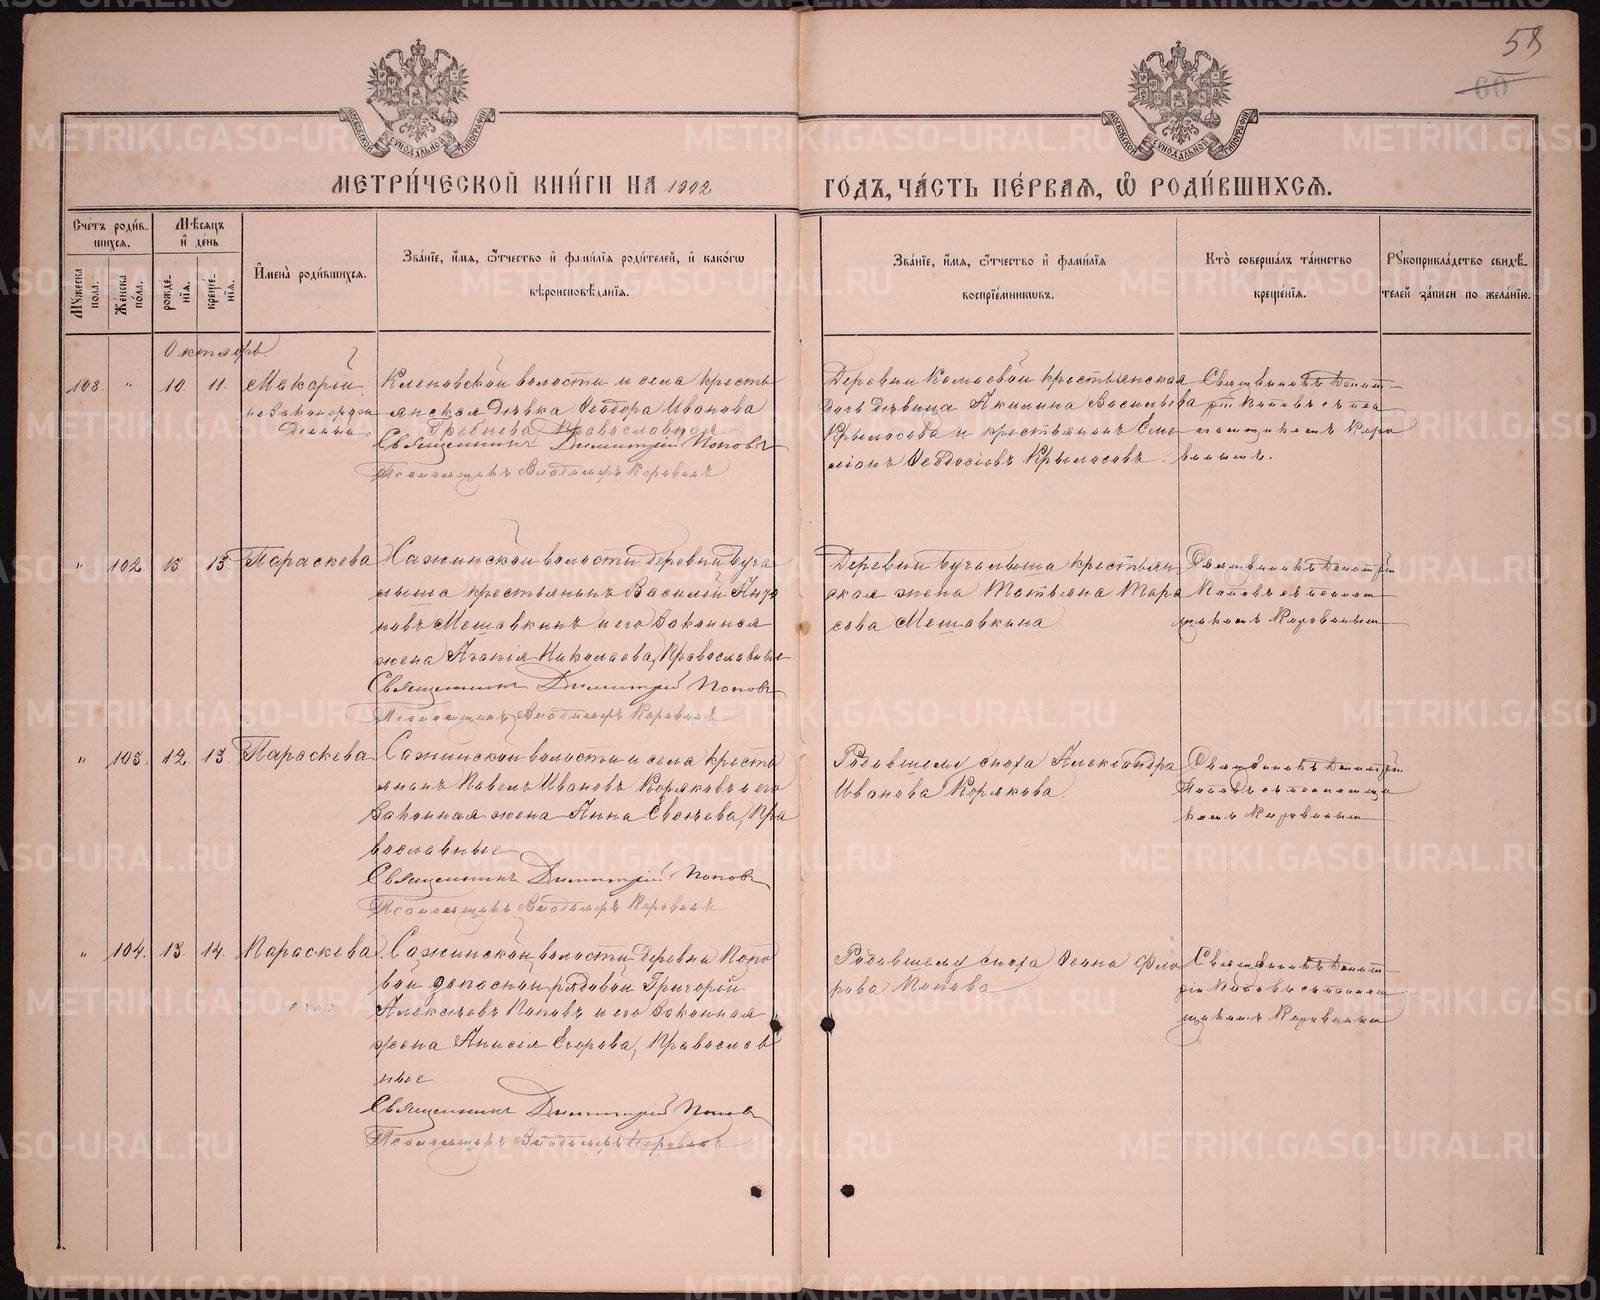 58
60
МОСКОВСКОЙ СѴНОДАЛЬНОЙ ТИПОГРАФІИ
МОСКОВСКОЙ СѴНОДАЛЬНОЙ ТИПОГРАФІИ
МЕТРИ́ЧЕСКОЙ КНИ́ГИ НА 1902
ГО́ДЪ, ЧА́СТЬ ПЕ́РВАѦ, Ѡ РОДИ́ВШИХСѦ.
Сче́тъ роди́в-
шихся.
Мѣ́сяцъ
и҆ де́нь
Му́жеска
по́ла.
Же́нска
по́ла.
рожде́-
нїя.
креще́-
нїя.
И҆мена̀ роди́вшихся.
Зва́нїе, и҆́мя, ѻ҆́тчество и҆ фами́лїя роди́телей, и҆ како́гѡ
вѣроисповѣ́данїя.
Зва́нїе, и҆́мя, ѻ҆́тчество и҆ фами́лїя
воспрїе́мникѡвъ.
Кто̀ соверша́лъ та́инство
креще́нїя.
Рꙋкоприкла́дство свидѣ́-
телей за́писи по жела́нїю.
Октябрь.
103. " 10. 11. Макарій
незаконорож
денный.
Кленовской волости и села кресть
янская дѣвка Ѳеодора Иванова
Гребнева Православная
Священникъ Димитрій Поповъ
Псаломщикъ Владимиръ Коровинъ
Деревни Комаевой крестьянская
дочь дѣвица Акилина Васильева
Крылосова и крестьянинъ Семе
ліонъ Ѳеодосіевъ Крыласовъ.
Священникъ Димит
рій Поповъ съ пса
ломщикомъ Коро
винымъ.
" 102 13 13. Параскева
Сажинской волости деревни Буга
лыша крестьянинъ Василій
Мошавкинъ и его законная
жена Агапія Николаева, Православные
Священникъ Димитрій Поповъ
Псаломщикъ Владимиръ Коровинъ
Деревни Бугалыша крестьян
ская жена Татьяна Тара
сова Мошавкина
Священникъ Димитрій
Поповъ съ псалом
щикомъ Коровинымъ
" 103. 12. 13. Параскева
Сажинской волости и села кресть
янинъ Павелъ Ивановъ Коряковъ и его
законная жена Анна Евсеева, Пра
вославные
Священникъ Димитрій Поповъ
Псаломщикъ Владимиръ Коровинъ
Родившему сноха Александра
Иванова Корякова.
Священникъ Димитрій
Поповъ съ псаломщи
комъ Коровинымъ
" 104. 13. 14. Параскева.
Сажинской волости деревни Попо
вой запасной рядовой Григорій
Алексѣевъ Поповъ и его законная
жена Анисія Егорова, Православ
ные
Священникъ Димитрій Поповъ
Псаломщикъ Владимиръ Коровинъ
Родившему сноха Ѳеона Фло
рова Попова
Священникъ Димит
рій Поповъ съ псалом
щикомъ Коровинымъ
METRIKI.GASO-URAL.RU